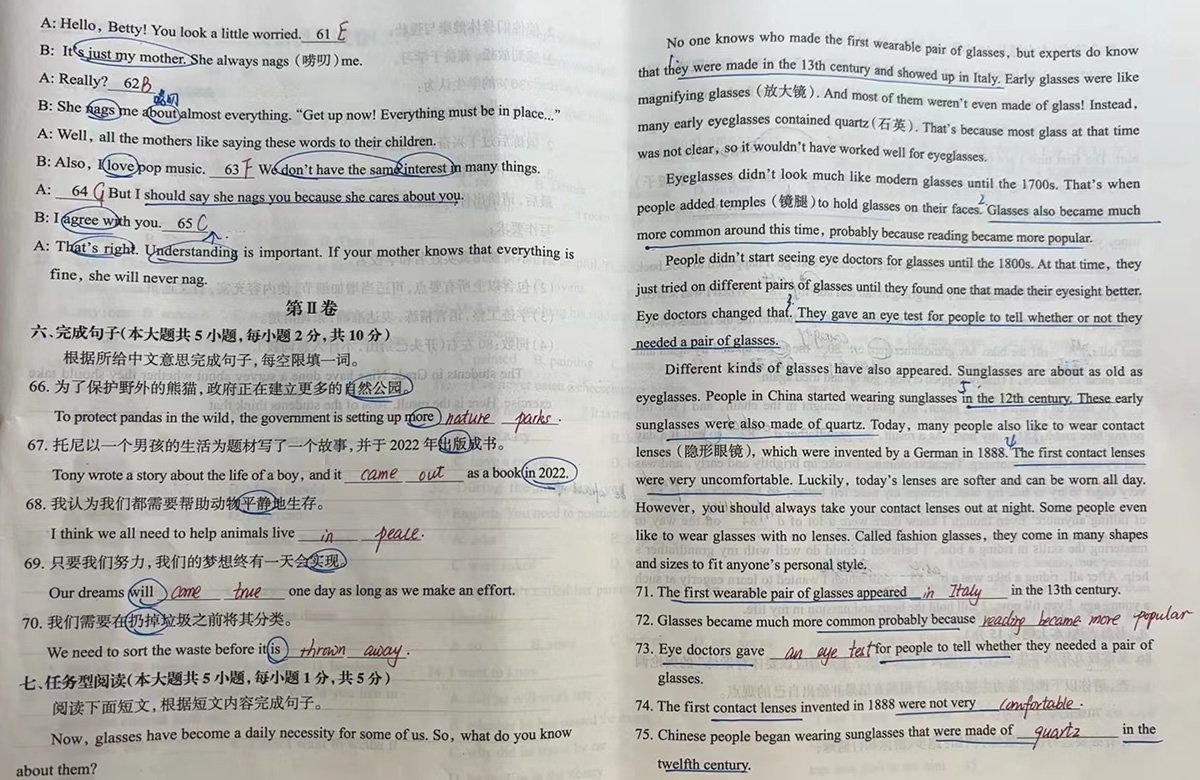 A: Hello, Betty! You look a little worried. 61 E
B: It's just my mother. She always nags (唠叨) me.
A: Really? 62 B
唠叨
B: She nags me about almost everything. “Get up now! Everything must be in place...”
A: Well, all the mothers like saying these words to their children.
B: Also, I love pop music. 63 F We don't have the same interest in many things.
A: 64 G But I should say she nags you because she cares about you.
B: I agree with you. 65 C
A: That's right. Understanding is important. If your mother knows that everything is
fine, she will never nag.
第Ⅱ卷
六、完成句子(本大题共5小题,每小题2分,共10分)
根据所给中文意思完成句子,每空限填一词。
66. 为了保护野外的熊猫,政府正在建立更多的自然公园。
To protect pandas in the wild, the government is setting up more nature parks.
67. 托尼以一个男孩的生活为题材写了一个故事,并于2022年出版成书。
Tony wrote a story about the life of a boy, and it came out as a book in 2022.
68. 我认为我们都需要帮助动物平静地生存。
I think we all need to help animals live in peace.
69. 只要我们努力,我们的梦想终有一天会实现。
Our dreams will come true one day as long as we make an effort.
70. 我们需要在扔掉垃圾之前将其分类。
We need to sort the waste before it is thrown away.
七、任务型阅读(本大题共5小题,每小题1分,共5分)
阅读下面短文,根据短文内容完成句子。
Now, glasses have become a daily necessity for some of us. So, what do you know
about them?
No one knows who made the first wearable pair of glasses, but experts do know
1.
that they were made in the 13th century and showed up in Italy. Early glasses were like
magnifying glasses (放大镜). And most of them weren't even made of glass! Instead,
many early eyeglasses contained quartz (石英). That's because most glass at that time
was not clear, so it wouldn't have worked well for eyeglasses.
Eyeglasses didn't look much like modern glasses until the 1700s. That's when
people added temples (镜腿) to hold glasses on their faces. 2 Glasses also became much
more common around this time, probably because reading became more popular.
People didn't start seeing eye doctors for glasses until the 1800s. At that time, they
just tried on different pairs of glasses until they found one that made their eyesight better.
Eye doctors changed that. 3. They gave an eye test for people to tell whether or not they
needed a pair of glasses.
Different kinds of glasses have also appeared. Sunglasses are about as old as
eyeglasses. People in China started wearing sunglasses 5. in the 12th century. These early
sunglasses were also made of quartz. Today, many people also like to wear contact
lenses (隐形眼镜), which were invented by a German in 1888. 4 The first contact lenses
were very uncomfortable. Luckily, today's lenses are softer and can be worn all day.
However, you should always take your contact lenses out at night. Some people even
like to wear glasses with no lenses. Called fashion glasses, they come in many shapes
and sizes to fit anyone's personal style.
71. The first wearable pair of glasses appeared in Italy in the 13th century.
72. Glasses became much more common probably because reading became more popular
73. Eye doctors gave an eye test for people to tell whether they needed a pair of
glasses.
74. The first contact lenses invented in 1888 were not very comfortable.
75. Chinese people began wearing sunglasses that were made of quartz in the
twelfth century.